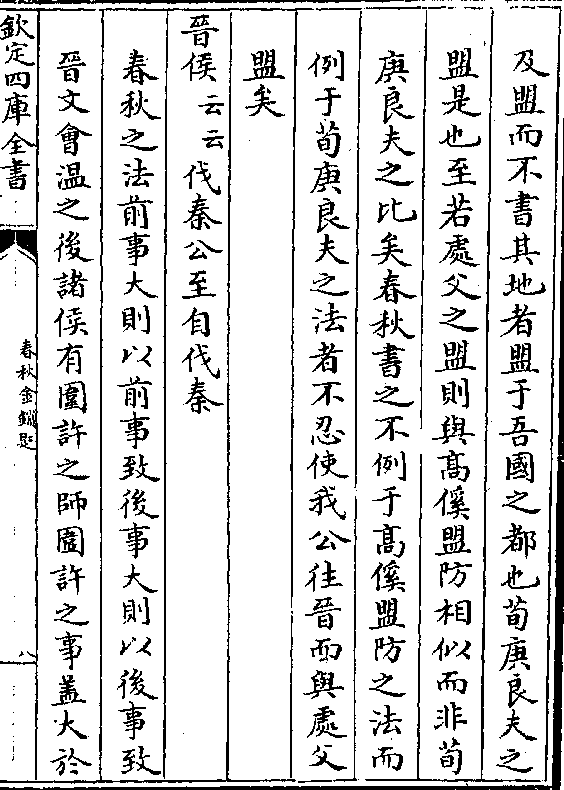 及盟而不書其地者盟于吾國之都也荀庚良夫之
盟是也至若處父之盟則與髙傒盟防相似而非荀
庚良夫之比矣春秋書之不例于髙傒盟防之法而
例于荀庚良夫之法者不忍使我公往晉而與處父
盟矣
晉侯云云伐秦公至自伐秦
春秋之法前事大則以前事致後事大則以後事致
晉文會温之後諸侯有圍許之師圍許之事葢大於
欽定四庫全書
春秋金鎖匙
八